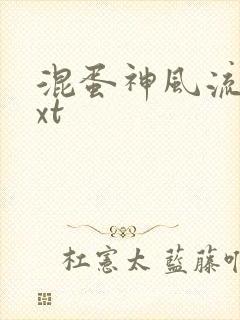 混蛋神風流
xt
杜憲太 藍藤